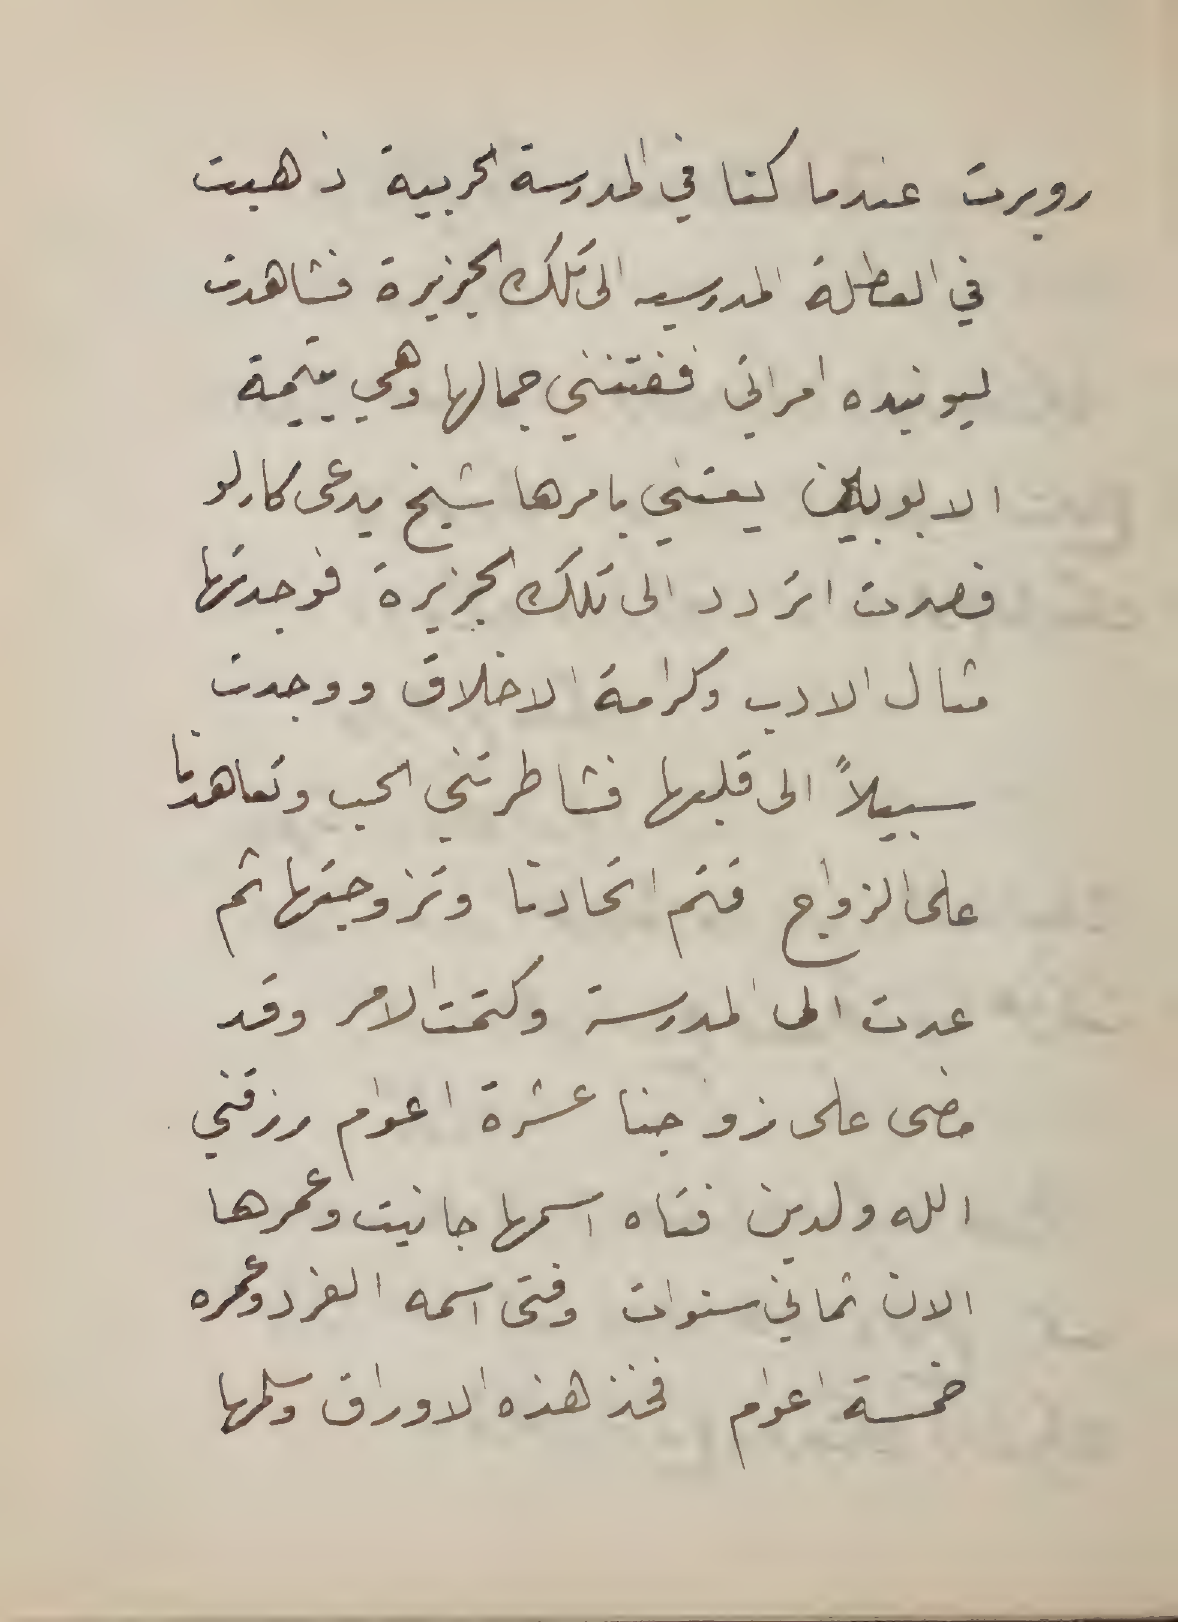 روبرت عندما كنا في المدرسة الحربية ذهبت
في العطلة المدرسيه الى تلك الجزيرة فشاهدت
ليونيده امراتي ففتنني جمالها وهي يتيمة
الابوين يعتني بامرها شيخ يدعى كارلو
فصرت اتردد الى تلك الجزيرة فوجدتها
مثال الادب وكرامة الاخلاق ووجدت
سبيلاً الى قلبها فشاطرتني الحب وتعاهدنا
على الزواج فتم اتحادنا وتزوجتها ثم
عدت الى المدرسة وكتمت الامر وقد
مضى على زواجنا عشرة اعوام رزقني
الله ولدين فتاه اسمها جانيت وعمرها
الان ثماني سنوات وفتى اسمه الفرد وعمره
خمسة اعوام فخذ هذه الاوراق وسلمها